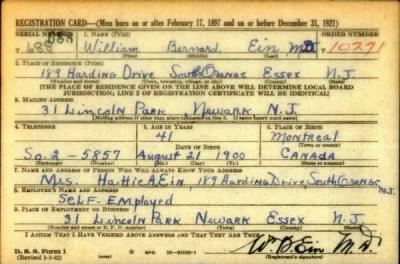 REGISTRATION CARD—(Men born on or after February 17, 1897 and on or before December 31, 1921)
SERIAL NUMBER 1. NAME (Print) ORDER NUMBER
T. 688 William Bernard Ein M.D. 10271
(First) (Middle) (Last)
2. PLACE OF RESIDENCE (Print)
189 Harding Drive South Orange Essex N.J.
(Number and street) (Town, township, village, or city) (County) (State)
[THE PLACE OF RESIDENCE GIVEN ON THE LINE ABOVE WILL DETERMINE LOCAL BOARD
JURISDICTION; LINE 2 OF REGISTRATION CERTIFICATE WILL BE IDENTICAL]
3. MAILING ADDRESS
31 Lincoln Park Newark N.J.
[Mailing address if other than place indicated on line 2. If same insert word same]
4. TELEPHONE 5. AGE IN YEARS 6. PLACE OF BIRTH
41 Montreal
DATE OF BIRTH
So.2-5857 August 21 1900 Canada
7. NAME AND ADDRESS OF PERSON WHO WILL ALWAYS KNOW YOUR ADDRESS
Mrs. Hattie A. Ein, 189 Harding Drive, South Orange N.J.
8. EMPLOYER'S NAME AND ADDRESS
Self-Employed
9. PLACE OF EMPLOYMENT OR BUSINESS
31 Lincoln Park Newark Essex N.J.
(Number and street or R. F. D. number) (Town) (County) (State)
I AFFIRM THAT I HAVE VERIFIED ABOVE ANSWERS AND THAT THEY ARE TRUE.
D. S. S. Form 1
(Revised 1-1-42) GPO 16-21630-1 W. B. Ein M.D.
(Registrant's signature)